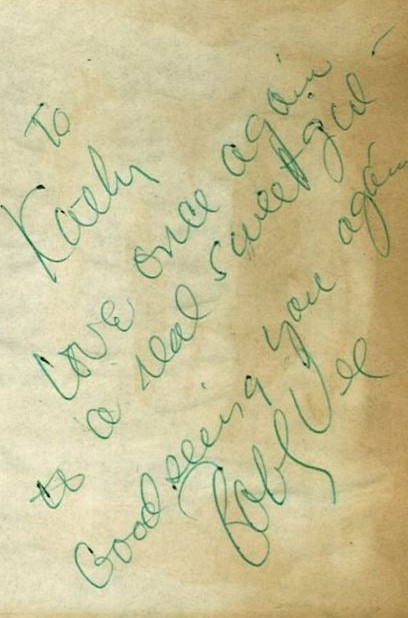 To
Kathy
Love once again -
to a real sweet girl -
Good seeing you again
Bobby Vee